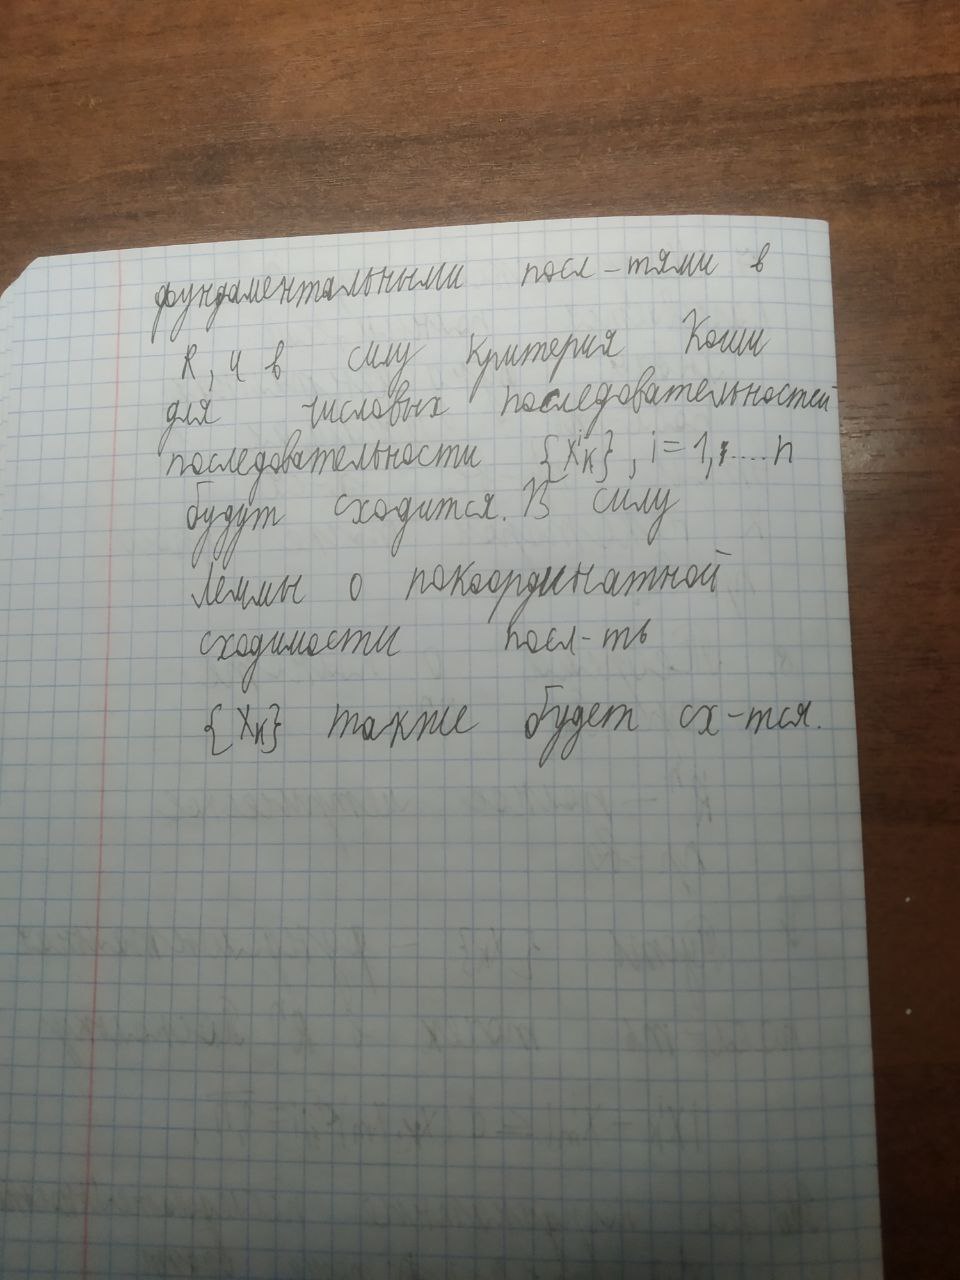 фундаментальными посл-тями в
R, и в силу критерия Коши
для числовых последовательностей
последовательности {x_k^i}, i=1,....n
будут сходится. В силу
Леммы о покоординатной
сходимости посл-ть
{x_k} также будет сх-тся.